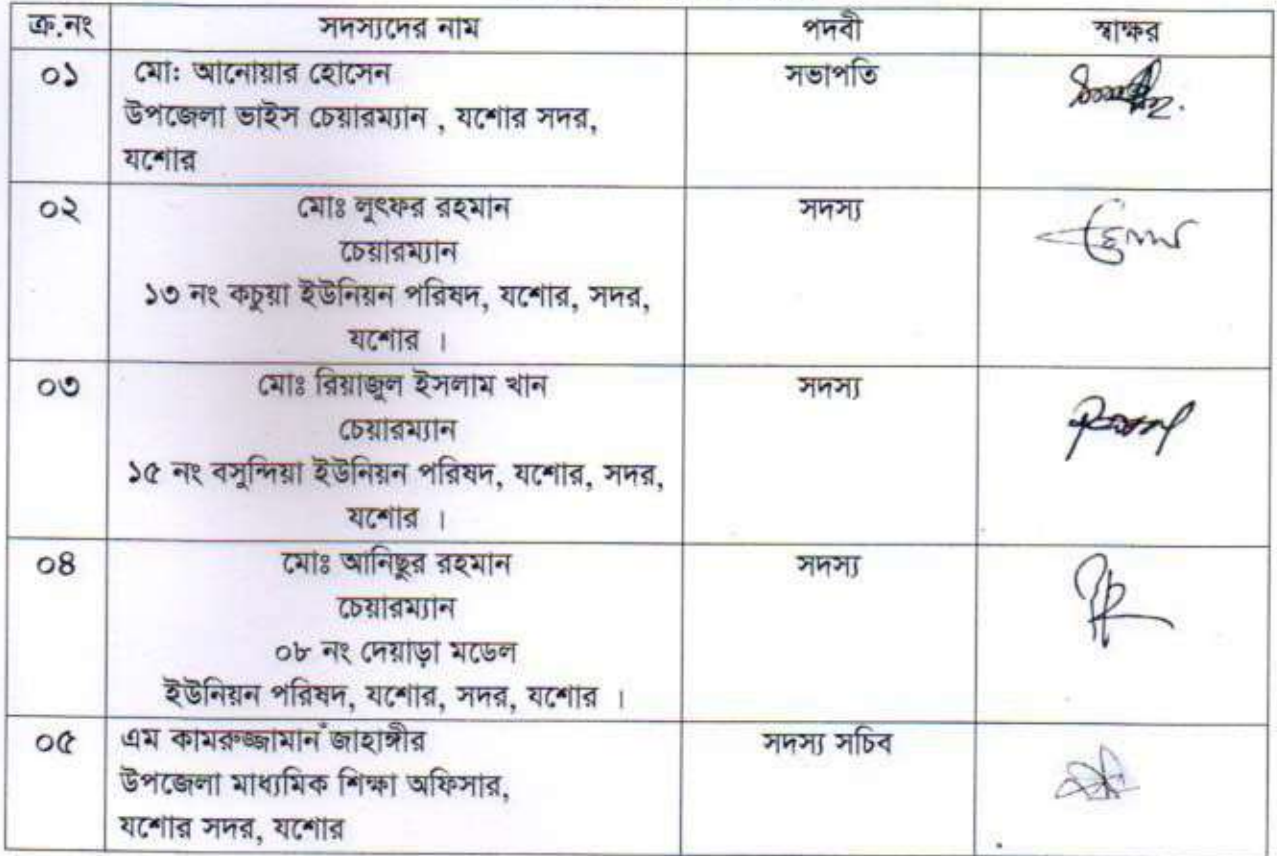 ক্র.নং সদস্যদের নাম পদবী স্বাক্ষর
০১ মো: আনোয়ার হোসেন সভাপতি
উপজেলা ভাইস চেয়ারম্যান , যশোর সদর,
যশোর
০২ মোঃ লুৎফর রহমান সদস্য
চেয়ারম্যান
১৩ নং কচুয়া ইউনিয়ন পরিষদ, যশোর, সদর,
যশোর ।
০৩ মোঃ রিয়াজুল ইসলাম খান সদস্য
চেয়ারম্যান
১৫ নং বসুন্দিয়া ইউনিয়ন পরিষদ, যশোর, সদর,
যশোর ।
০৪ মোঃ আনিছুর রহমান সদস্য
চেয়ারম্যান
০৮ নং দেয়াড়া মডেল
ইউনিয়ন পরিষদ, যশোর, সদর, যশোর ।
০৫ এম কামরুজ্জামান জাহাঙ্গীর সদস্য সচিব
উপজেলা মাধ্যমিক শিক্ষা অফিসার,
যশোর সদর, যশোর